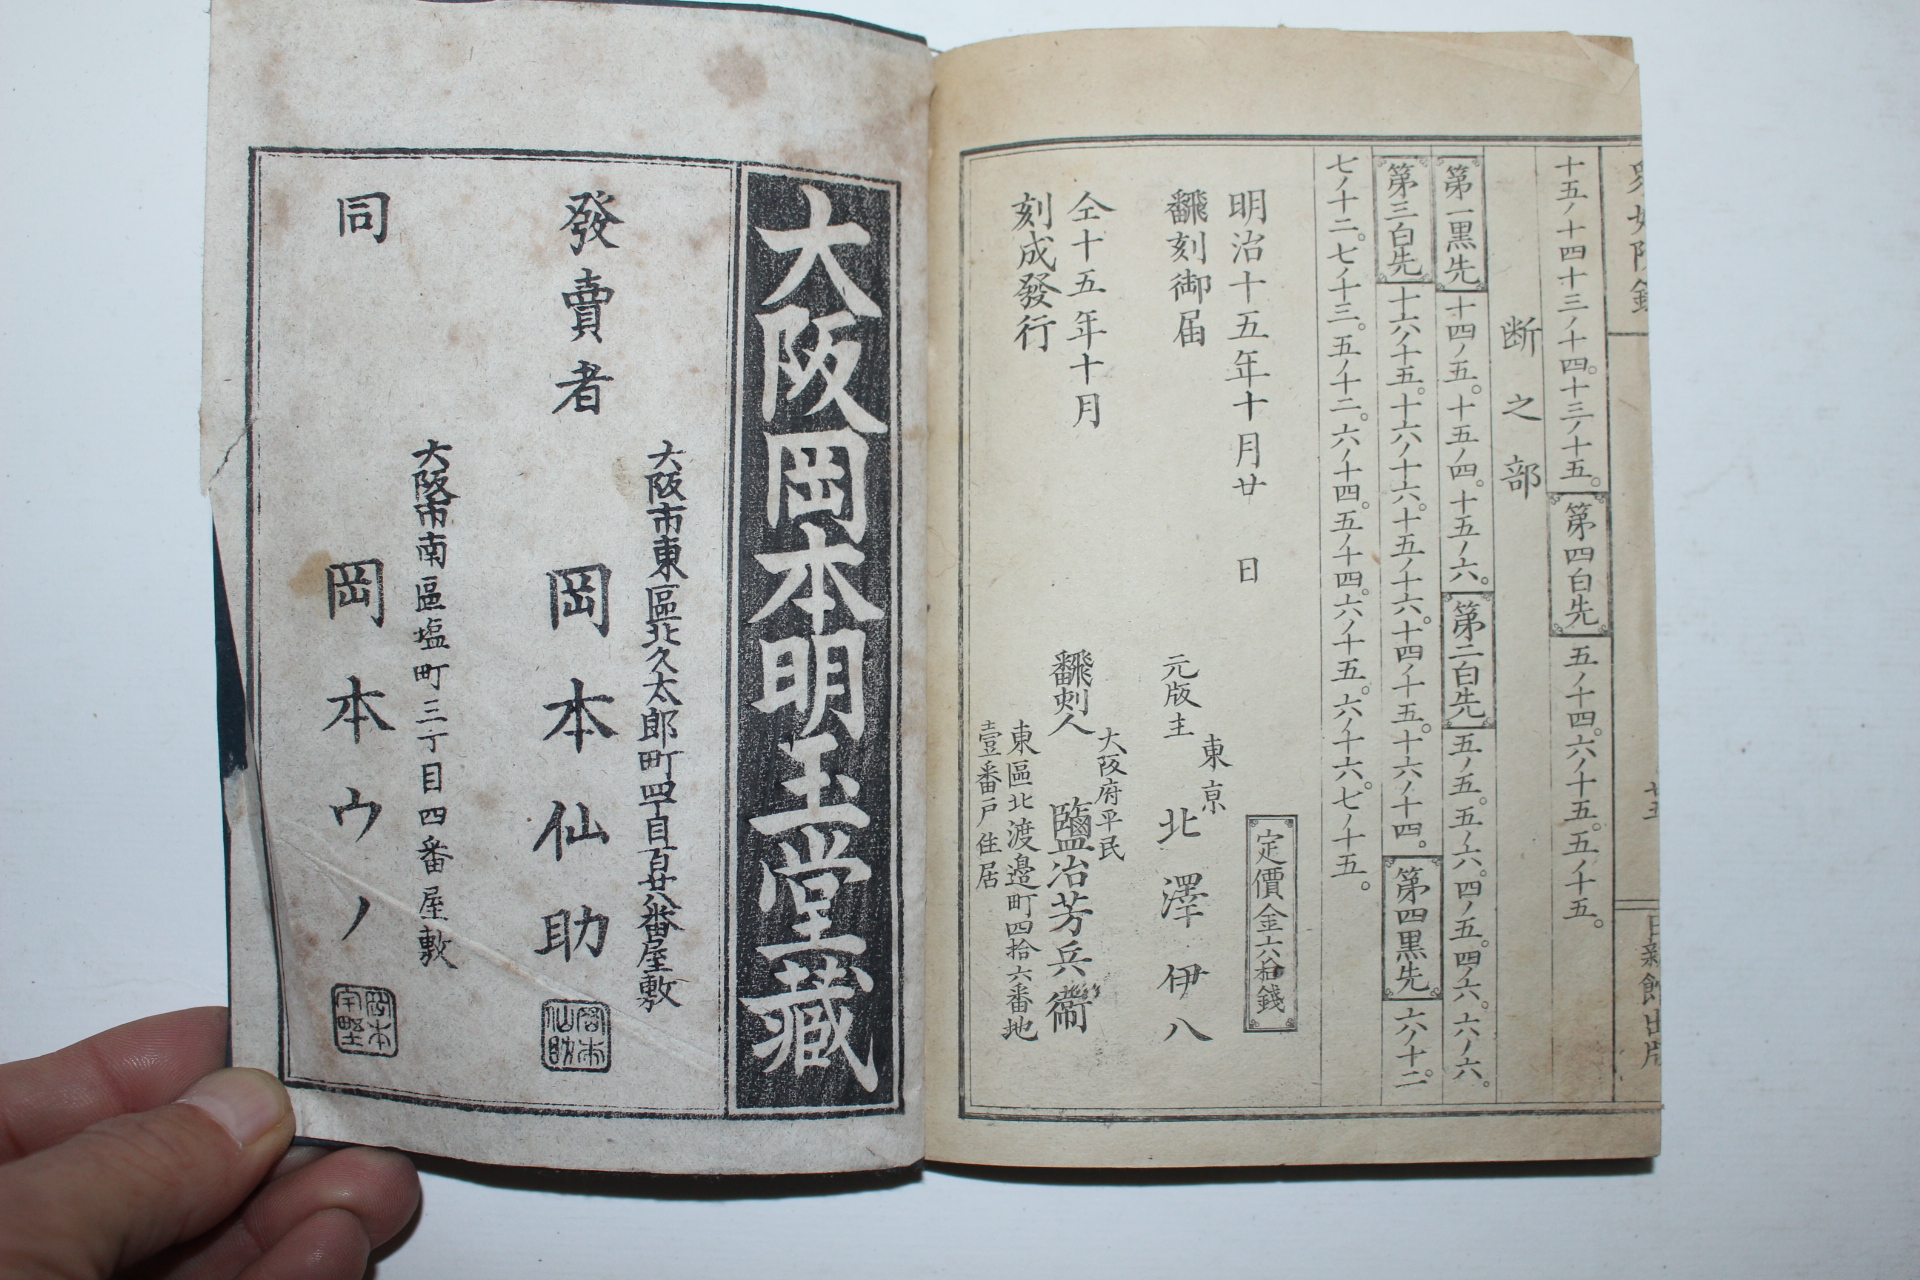 十五ノ十四十三ノ十四。十三ノ十五。第四白先 五ノ十四。六ノ十五。五ノ十五。
断之部
第一黒先 十四ノ五。十五ノ四。十五ノ六。第二白先 五ノ五。五ノ六。四ノ五。四ノ六。六ノ六。
第三白先 十六ノ十五。十六ノ十六。十五ノ十六。十四ノ十五。十六ノ十四。第四黒先 六ノ十二。
七ノ十二。七ノ十三。五ノ十二。六ノ十四。五ノ十四。六ノ十五。六ノ十六。七ノ十五。
定價金六拾錢
明治十五年十月廿 日
飜刻御届
東亰
元版主 北澤伊八
仝十五年十月
刻成發行
大阪府平民
飜刻人 鹽冶芳兵衞
東區北渡邉町四拾六番地
壹番戸住居
日新館出版
大阪岡本明玉堂藏
大阪市東區北久太郎町四丁目百廿八番屋敷
發賣者 岡本仙助
岡本仙助
大阪市南區塩町三丁目四番屋敷
同 岡本ウノ
岡本宇野